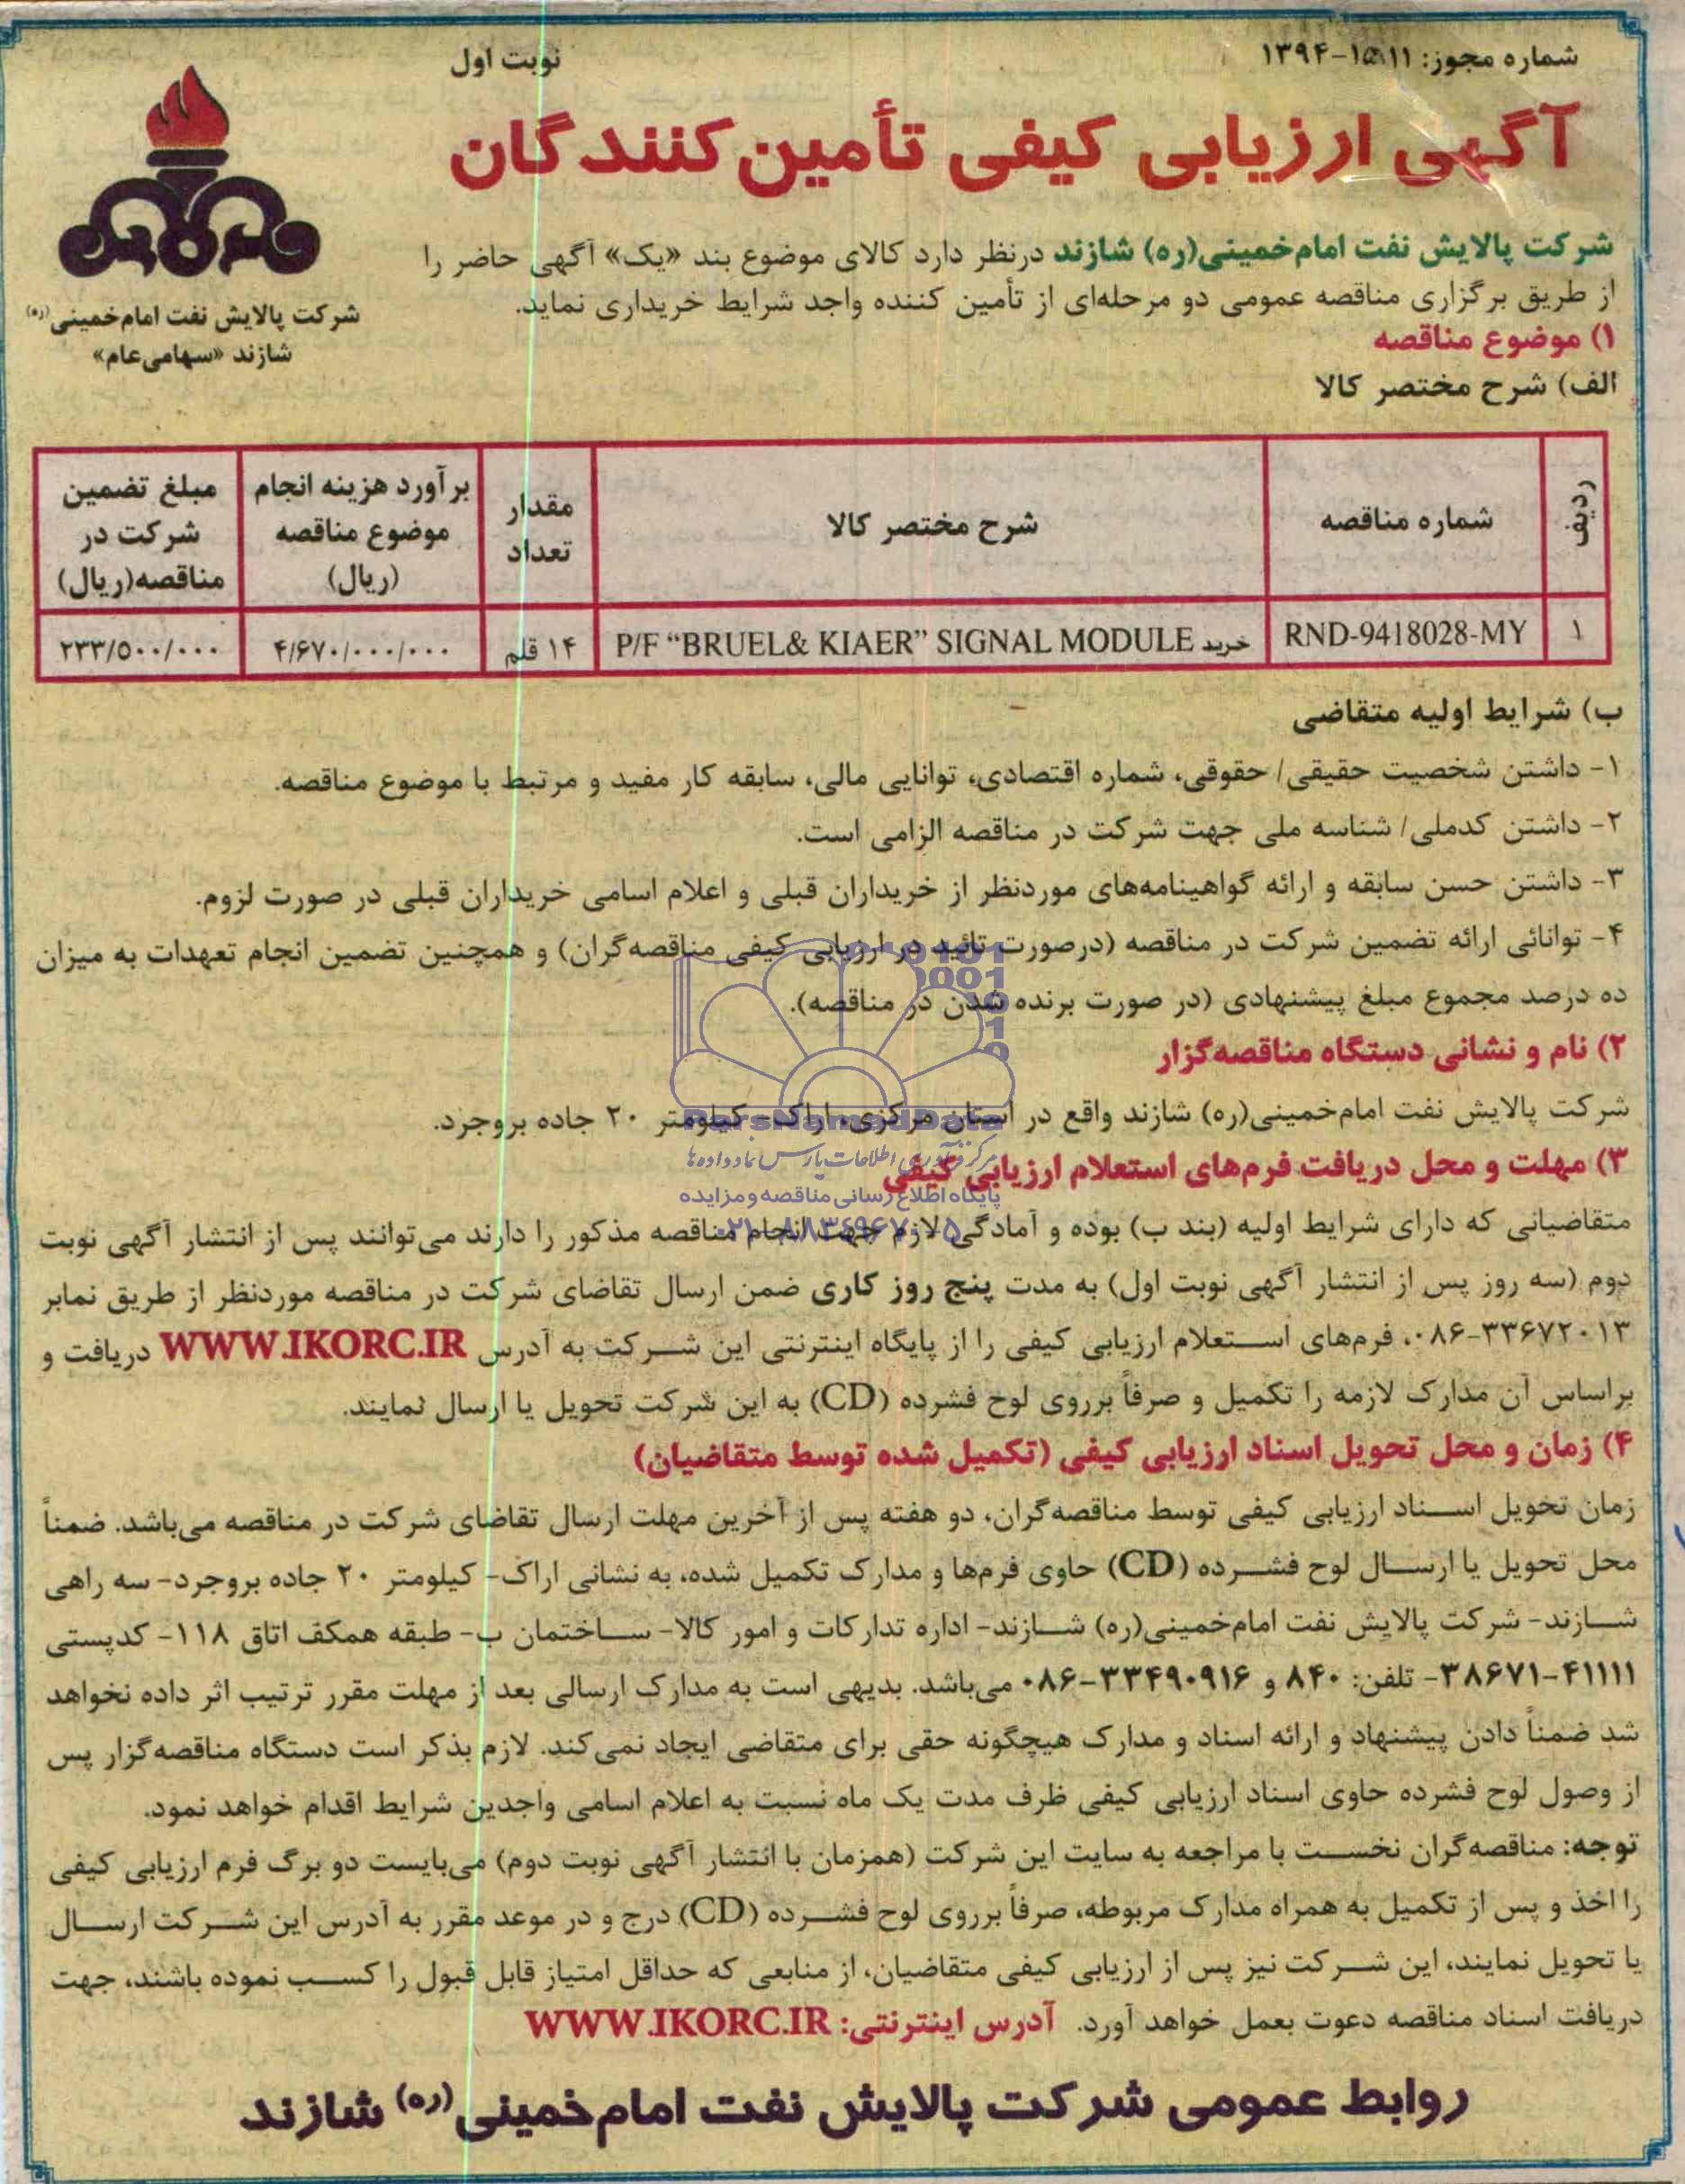 شماره مجوز: ۱۵۱۱-۱۳۹۴
نوبت اول
آگهی ارزیابی کیفی تأمین‌کنندگان
شرکت پالایش نفت امام‌خمینی(ره) شازند درنظر دارد کالای موضوع بند «یک» آگهی حاضر را
از طریق برگزاری مناقصه عمومی دو مرحله‌ای از تأمین کننده واجد شرایط خریداری نماید.
شرکت پالایش نفت امام‌خمینی(ره)
شازند «سهامی‌عام»
۱) موضوع مناقصه
الف) شرح مختصر کالا
ردیف
شماره مناقصه
شرح مختصر کالا
مقدار
تعداد
برآورد هزینه انجام
موضوع مناقصه
(ریال)
مبلغ تضمین
شرکت در
مناقصه(ریال)
۱
RND-9418028-MY
خرید P/F “BRUEL& KIAER” SIGNAL MODULE
۱۴ قلم
۴/۶۷۰/۰۰۰/۰۰۰
۲۳۳/۵۰۰/۰۰۰
ب) شرایط اولیه متقاضی
۱- داشتن شخصیت حقیقی/ حقوقی، شماره اقتصادی، توانایی مالی، سابقه کار مفید و مرتبط با موضوع مناقصه.
۲- داشتن کدملی/ شناسه ملی جهت شرکت در مناقصه الزامی است.
۳- داشتن حسن سابقه و ارائه گواهینامه‌های موردنظر از خریداران قبلی و اعلام اسامی خریداران قبلی در صورت لزوم.
۴- توانائی ارائه تضمین شرکت در مناقصه (درصورت تائید در ارزیابی کیفی مناقصه‌گران) و همچنین تضمین انجام تعهدات به میزان
ده درصد مجموع مبلغ پیشنهادی (در صورت برنده شدن در مناقصه).
۲) نام و نشانی دستگاه مناقصه‌گزار
شرکت پالایش نفت امام‌خمینی(ره) شازند واقع در استان مرکزی، اراک- کیلومتر ۲۰ جاده بروجرد.
ParsNamadData
مرکز فرآوری اطلاعات پارس نماد داده‌ها
۳) مهلت و محل دریافت فرم‌های استعلام ارزیابی کیفی
پایگاه اطلاع رسانی مناقصه و مزایده
۰۲۱-۸۸۳۴۹۶۷۰-۵
متقاضیانی که دارای شرایط اولیه (بند ب) بوده و آمادگی لازم جهت انجام مناقصه مذکور را دارند می‌توانند پس از انتشار آگهی نوبت
دوم (سه روز پس از انتشار آگهی نوبت اول) به مدت پنج روز کاری ضمن ارسال تقاضای شرکت در مناقصه موردنظر از طریق نمابر
۳۳۶۷۲۰۱۳-۰۸۶، فرم‌های استعلام ارزیابی کیفی را از پایگاه اینترنتی این شرکت به آدرس WWW.IKORC.IR دریافت و
براساس آن مدارک لازمه را تکمیل و صرفاً برروی لوح فشرده (CD) به این شرکت تحویل یا ارسال نمایند.
۴) زمان و محل تحویل اسناد ارزیابی کیفی (تکمیل شده توسط متقاضیان)
زمان تحویل اسناد ارزیابی کیفی توسط مناقصه‌گران، دو هفته پس از آخرین مهلت ارسال تقاضای شرکت در مناقصه می‌باشد. ضمناً
محل تحویل یا ارسال لوح فشرده (CD) حاوی فرم‌ها و مدارک تکمیل شده، به نشانی اراک- کیلومتر ۲۰ جاده بروجرد- سه راهی
شازند- شرکت پالایش نفت امام‌خمینی(ره) شازند- اداره تدارکات و امور کالا- ساختمان ب- طبقه همکف اتاق ۱۱۸- کدپستی
۴۱۱۱۱-۳۸۶۷۱- تلفن: ۸۴۰ و ۳۳۴۹۰۹۱۶-۰۸۶ می‌باشد. بدیهی است به مدارک ارسالی بعد از مهلت مقرر ترتیب اثر داده نخواهد
شد ضمناً دادن پیشنهاد و ارائه اسناد و مدارک هیچگونه حقی برای متقاضی ایجاد نمی‌کند. لازم بذکر است دستگاه مناقصه‌گزار پس
از وصول لوح فشرده حاوی اسناد ارزیابی کیفی ظرف مدت یک ماه نسبت به اعلام اسامی واجدین شرایط اقدام خواهد نمود.
توجه: مناقصه‌گران نخست با مراجعه به سایت این شرکت (همزمان با انتشار آگهی نوبت دوم) می‌بایست دو برگ فرم ارزیابی کیفی
را اخذ و پس از تکمیل به همراه مدارک مربوطه، صرفاً برروی لوح فشرده (CD) درج و در موعد مقرر به آدرس این شرکت ارسال
یا تحویل نمایند، این شرکت نیز پس از ارزیابی کیفی متقاضیان، از منابعی که حداقل امتیاز قابل قبول را کسب نموده باشند، جهت
دریافت اسناد مناقصه دعوت بعمل خواهد آورد. آدرس اینترنتی: WWW.IKORC.IR
روابط عمومی شرکت پالایش نفت امام‌خمینی(ره) شازند